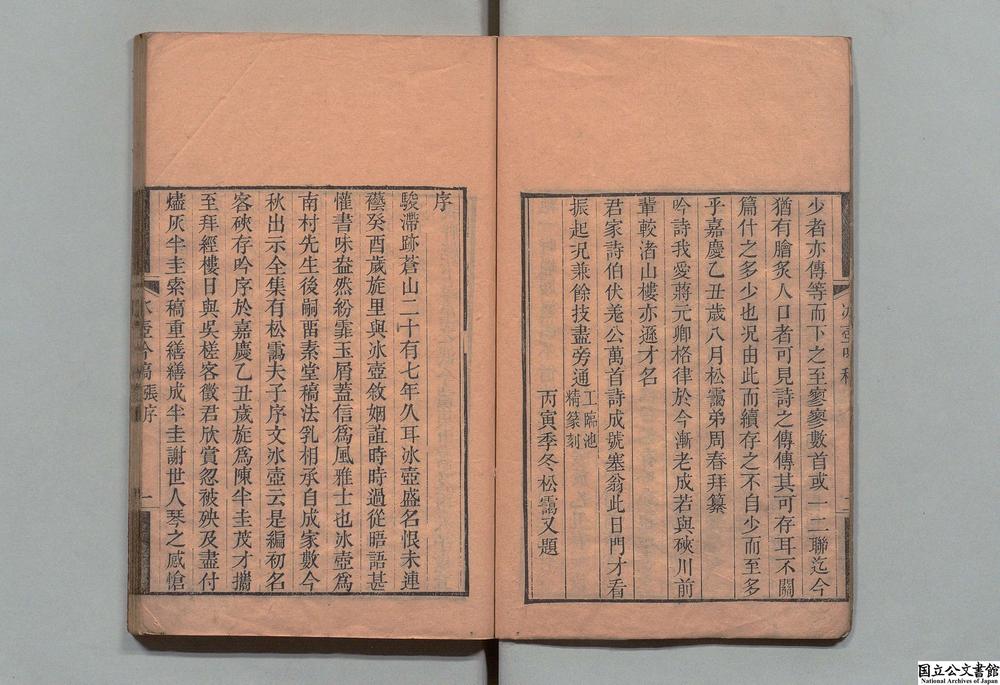 少者亦傳等而下之至寥寥數首或一二聯迄今
猶有膾炙人口者可見詩之傳傳其可存耳不關
篇什之多少也況由此而續存之不自少而至多
乎嘉慶乙丑歲八月松靄弟周春拜纂
吟詩我愛蔣元卿格律於今漸老成若與硤川前
輩較渚山樓亦遜才名
君家詩伯伏羗公萬首詩成號塞翁此日門才看
振起況兼餘技盡旁通工臨池精篆刻
丙寅季冬松靄又題
冰壺吟稿
二
序
駿滯跡蒼山二十有七年久耳冰壺盛名恨未連
襼癸酉歲旋里與冰壺敘姻誼時時過從晤語甚
懽書味盎然紛霏玉屑蓋信為風雅士也冰壺為
南村先生後嗣畱素堂稿法乳相承自成家數今
秋出示全集有松靄夫子序文冰壺云是編初名
容硤存吟序於嘉慶乙丑歲旋為陳半圭茂才攜
至拜經樓日與吳槎客徵君欣賞忽被殃及盡付
燼灰半圭索稿重繕繕成半圭謝世人琴之感愴
冰壺吟稿
張序
一
国立公文書館
National Archives of Japan